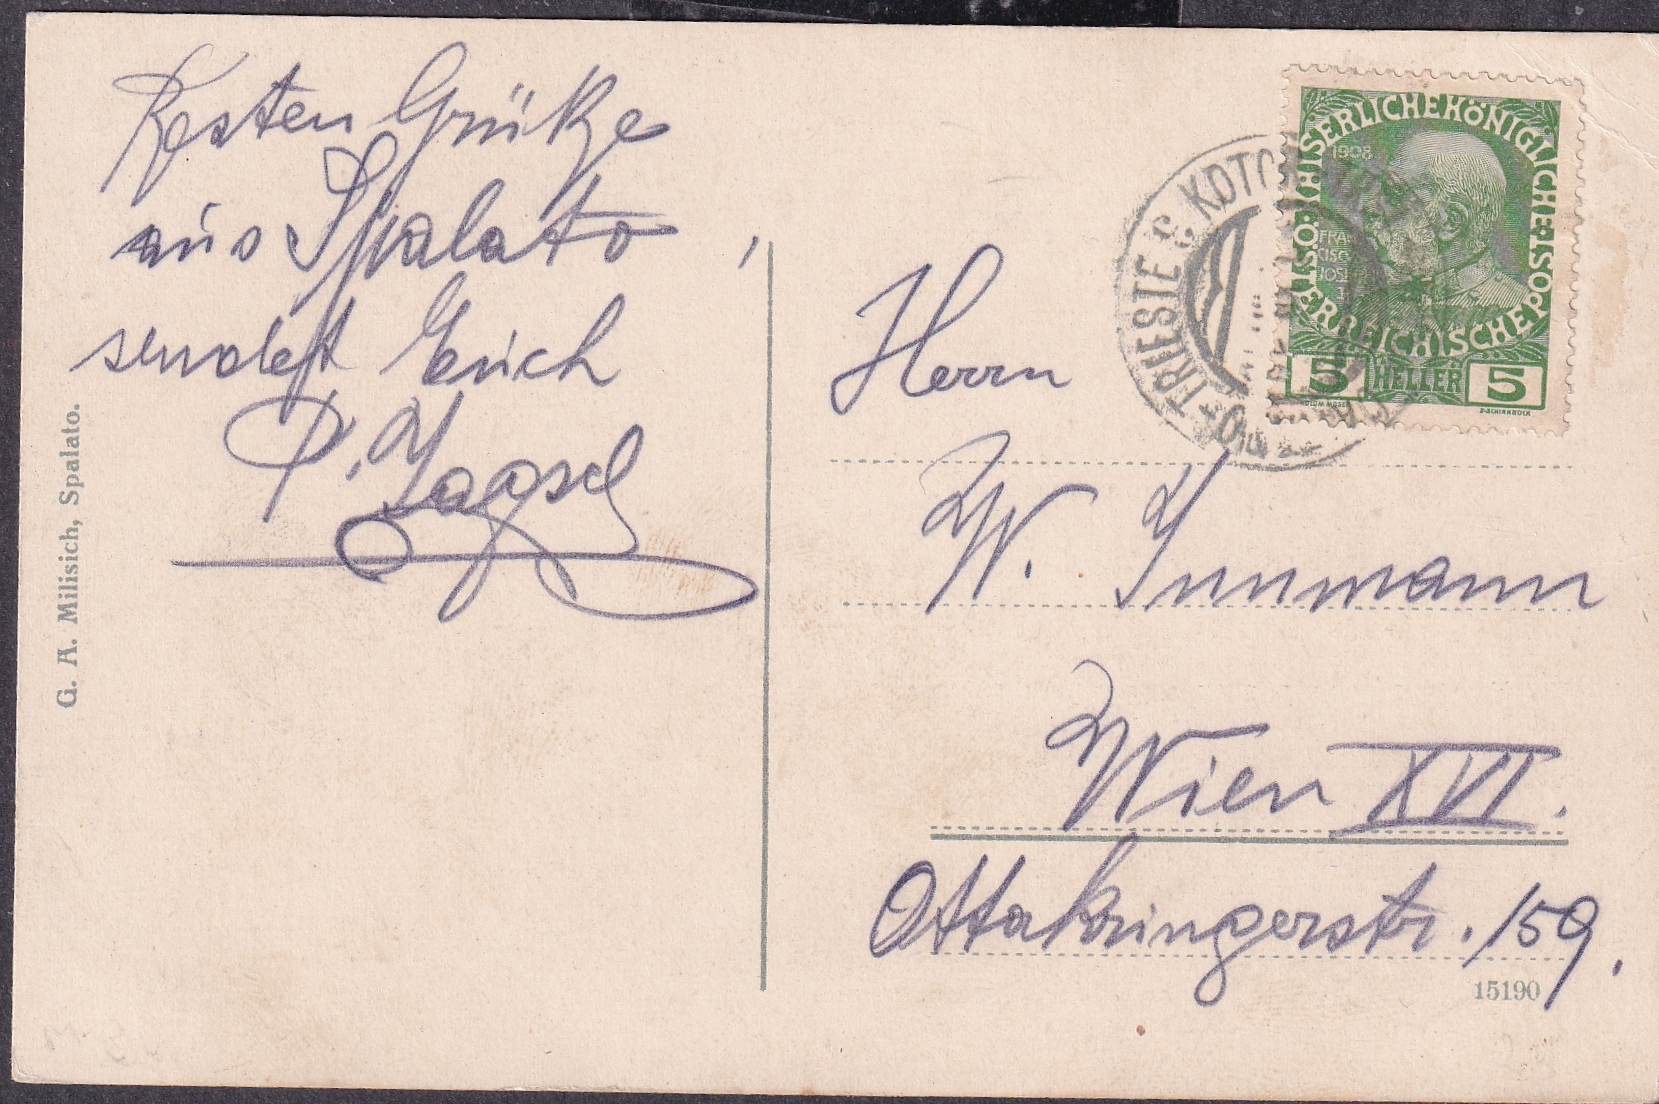 Besten Grüße
aus Spalato
sendet Erich
G. A. Milisich, Spalato.
KAISERLICHE KÖNIGLICHE ÖSTERREICHISCHE POST
1908
5 HELLER 5
TRIESTE
Herrn
W. Innmann
Wien XVI.
Ottakringerstr. 159.
15190